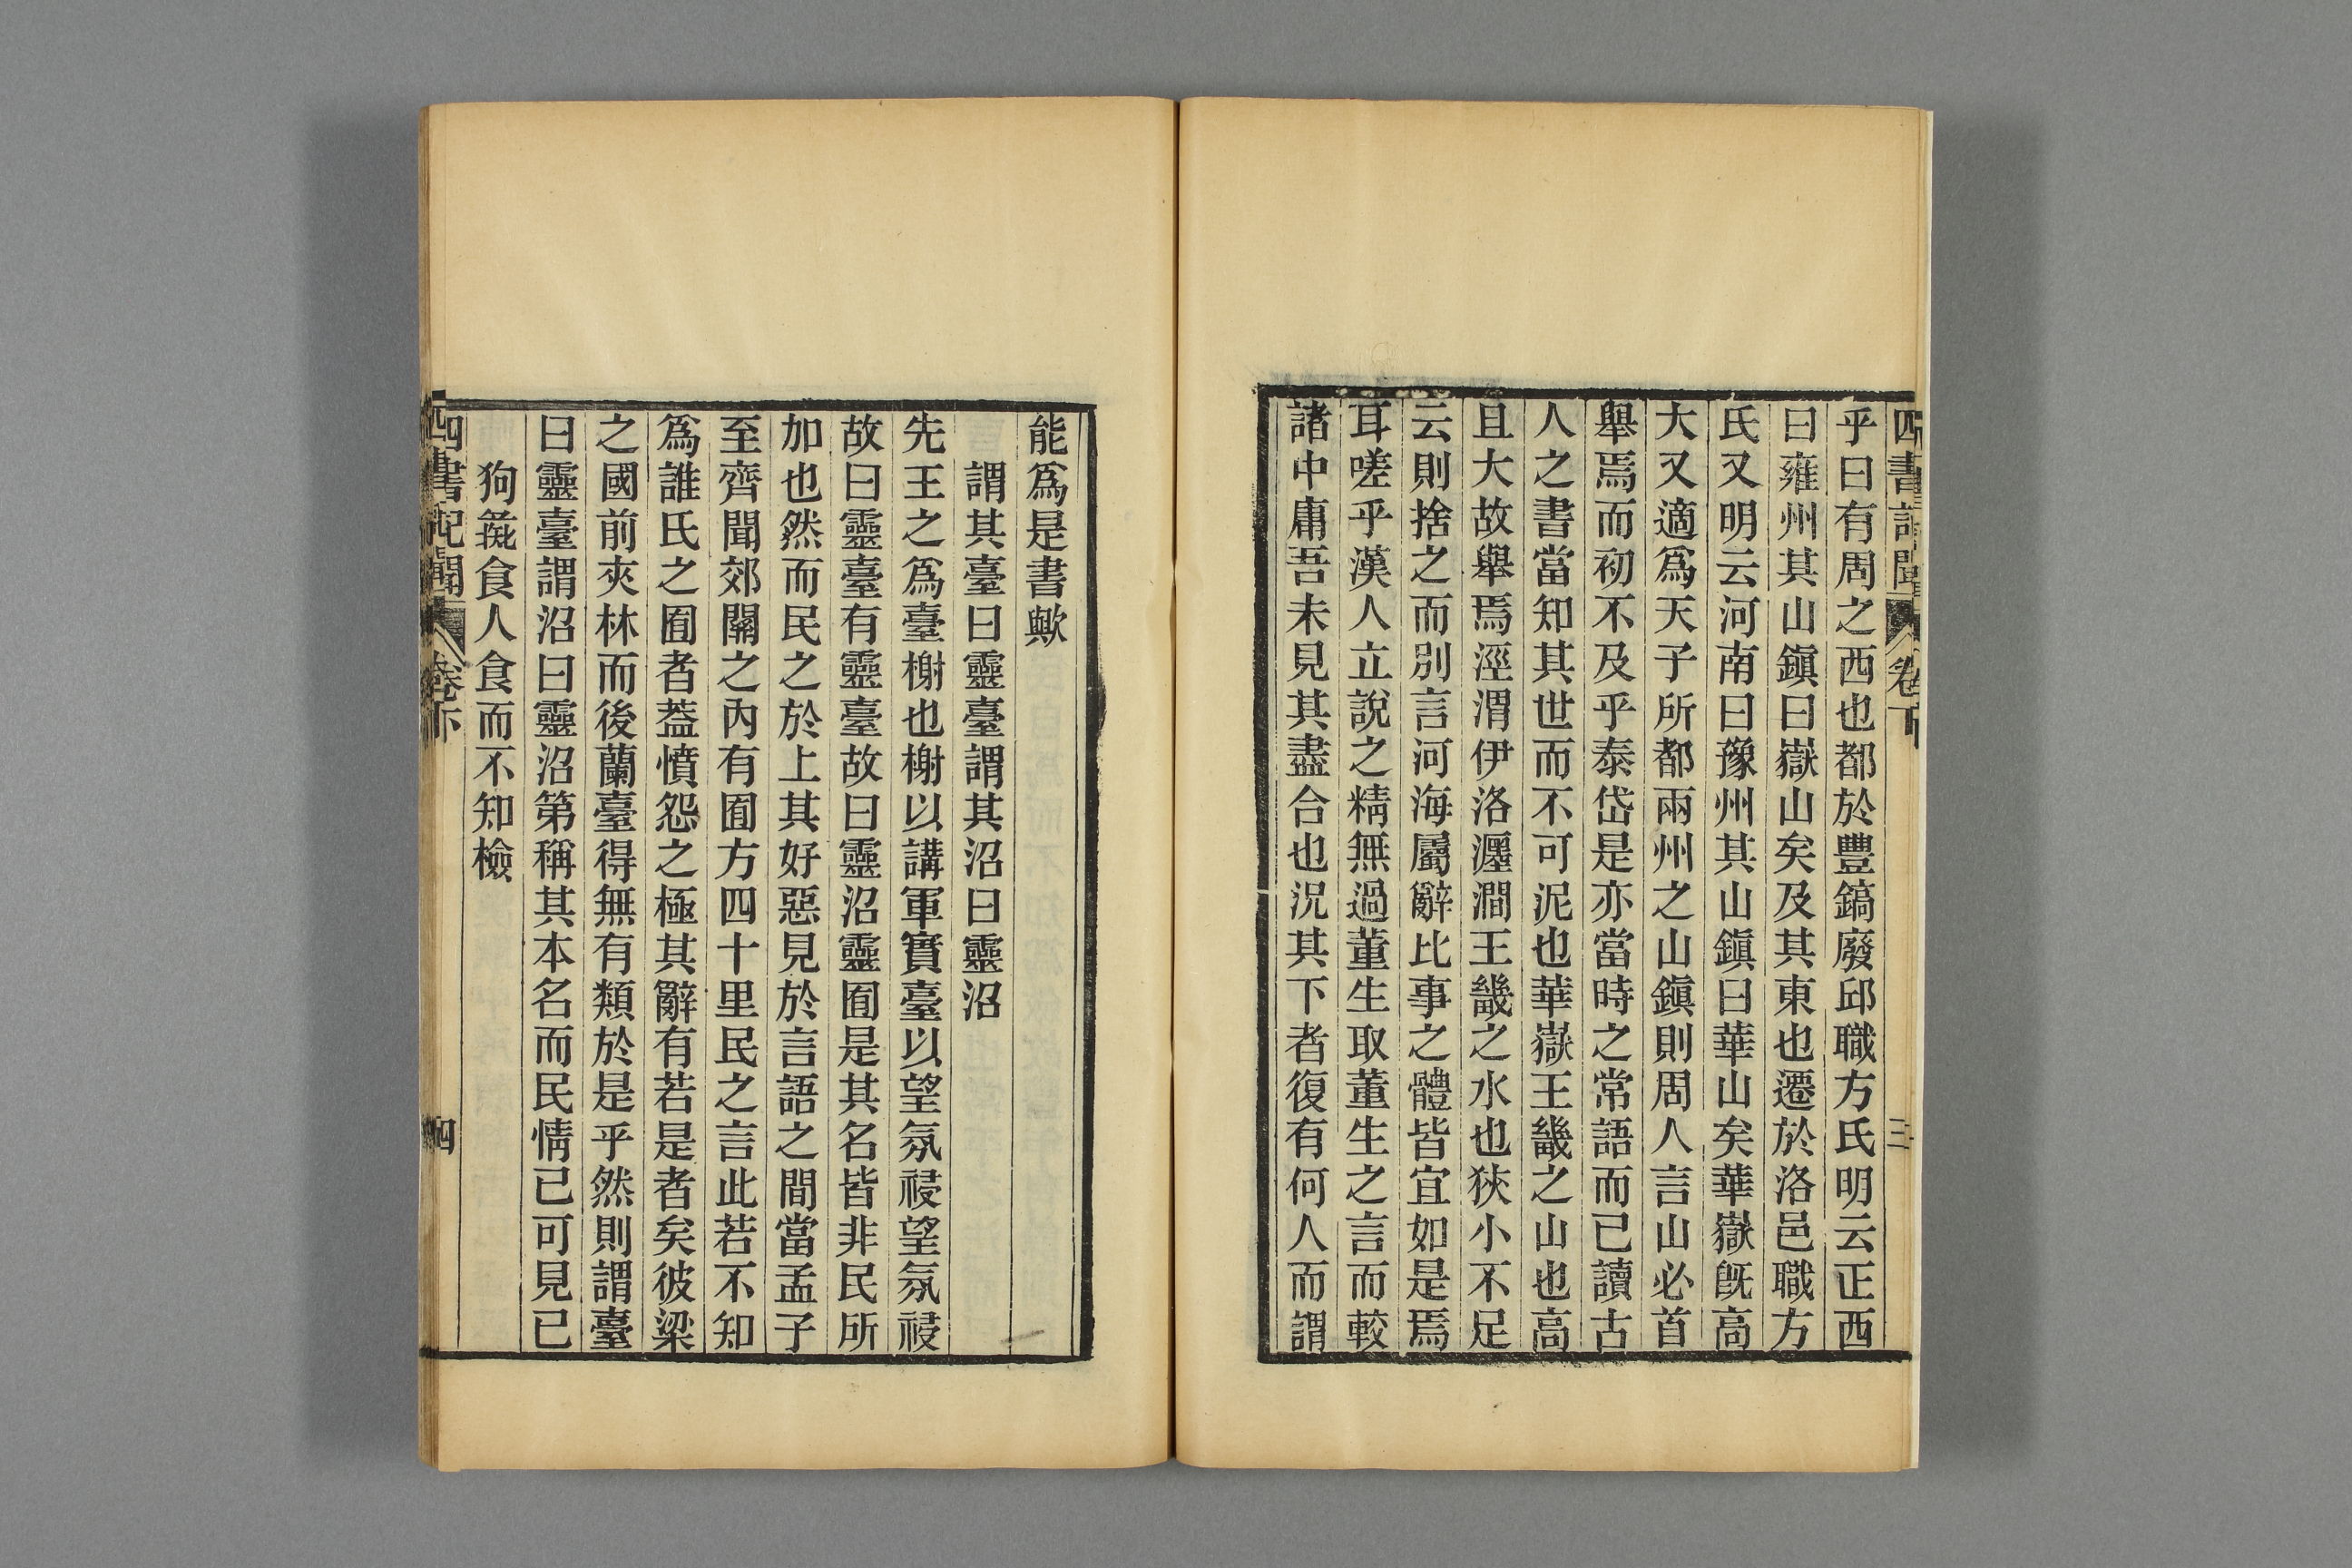 四書記聞
卷下
三
乎曰有周之西也都於豐鎬廢邱職方氏明云正西
曰雍州其山鎭曰嶽山矣及其東也遷於洛邑職方
氏又明云河南曰豫州其山鎭曰華山矣華嶽旣高
大又適爲天子所都兩州之山鎭則周人言山必首
舉焉而初不及乎泰岱是亦當時之常語而已讀古
人之書當知其世而不可泥也華嶽王畿之山也高
且大故舉焉涇渭伊洛瀍澗王畿之水也狹小不足
云則捨之而別言河海屬辭比事之體皆宜如是焉
耳嗟乎漢人立說之精無過董生取董生之言而較
諸中庸吾未見其盡合也況其下者復有何人而謂
能爲是書歟
謂其臺曰靈臺謂其沼曰靈沼
先王之爲臺榭也榭以講軍實臺以望氛祲望氛祲
故曰靈臺有靈臺故曰靈沼靈囿是其名皆非民所
加也然而民之於上其好惡見於言語之間當孟子
至齊聞郊關之內有囿方四十里民之言此若不知
爲誰氏之囿者葢憤怨之極其辭有若是者矣彼梁
之國前夾林而後蘭臺得無有類於是乎然則謂臺
曰靈臺謂沼曰靈沼第稱其本名而民情已可見已
狗彘食人食而不知檢
四書記聞
卷下
四